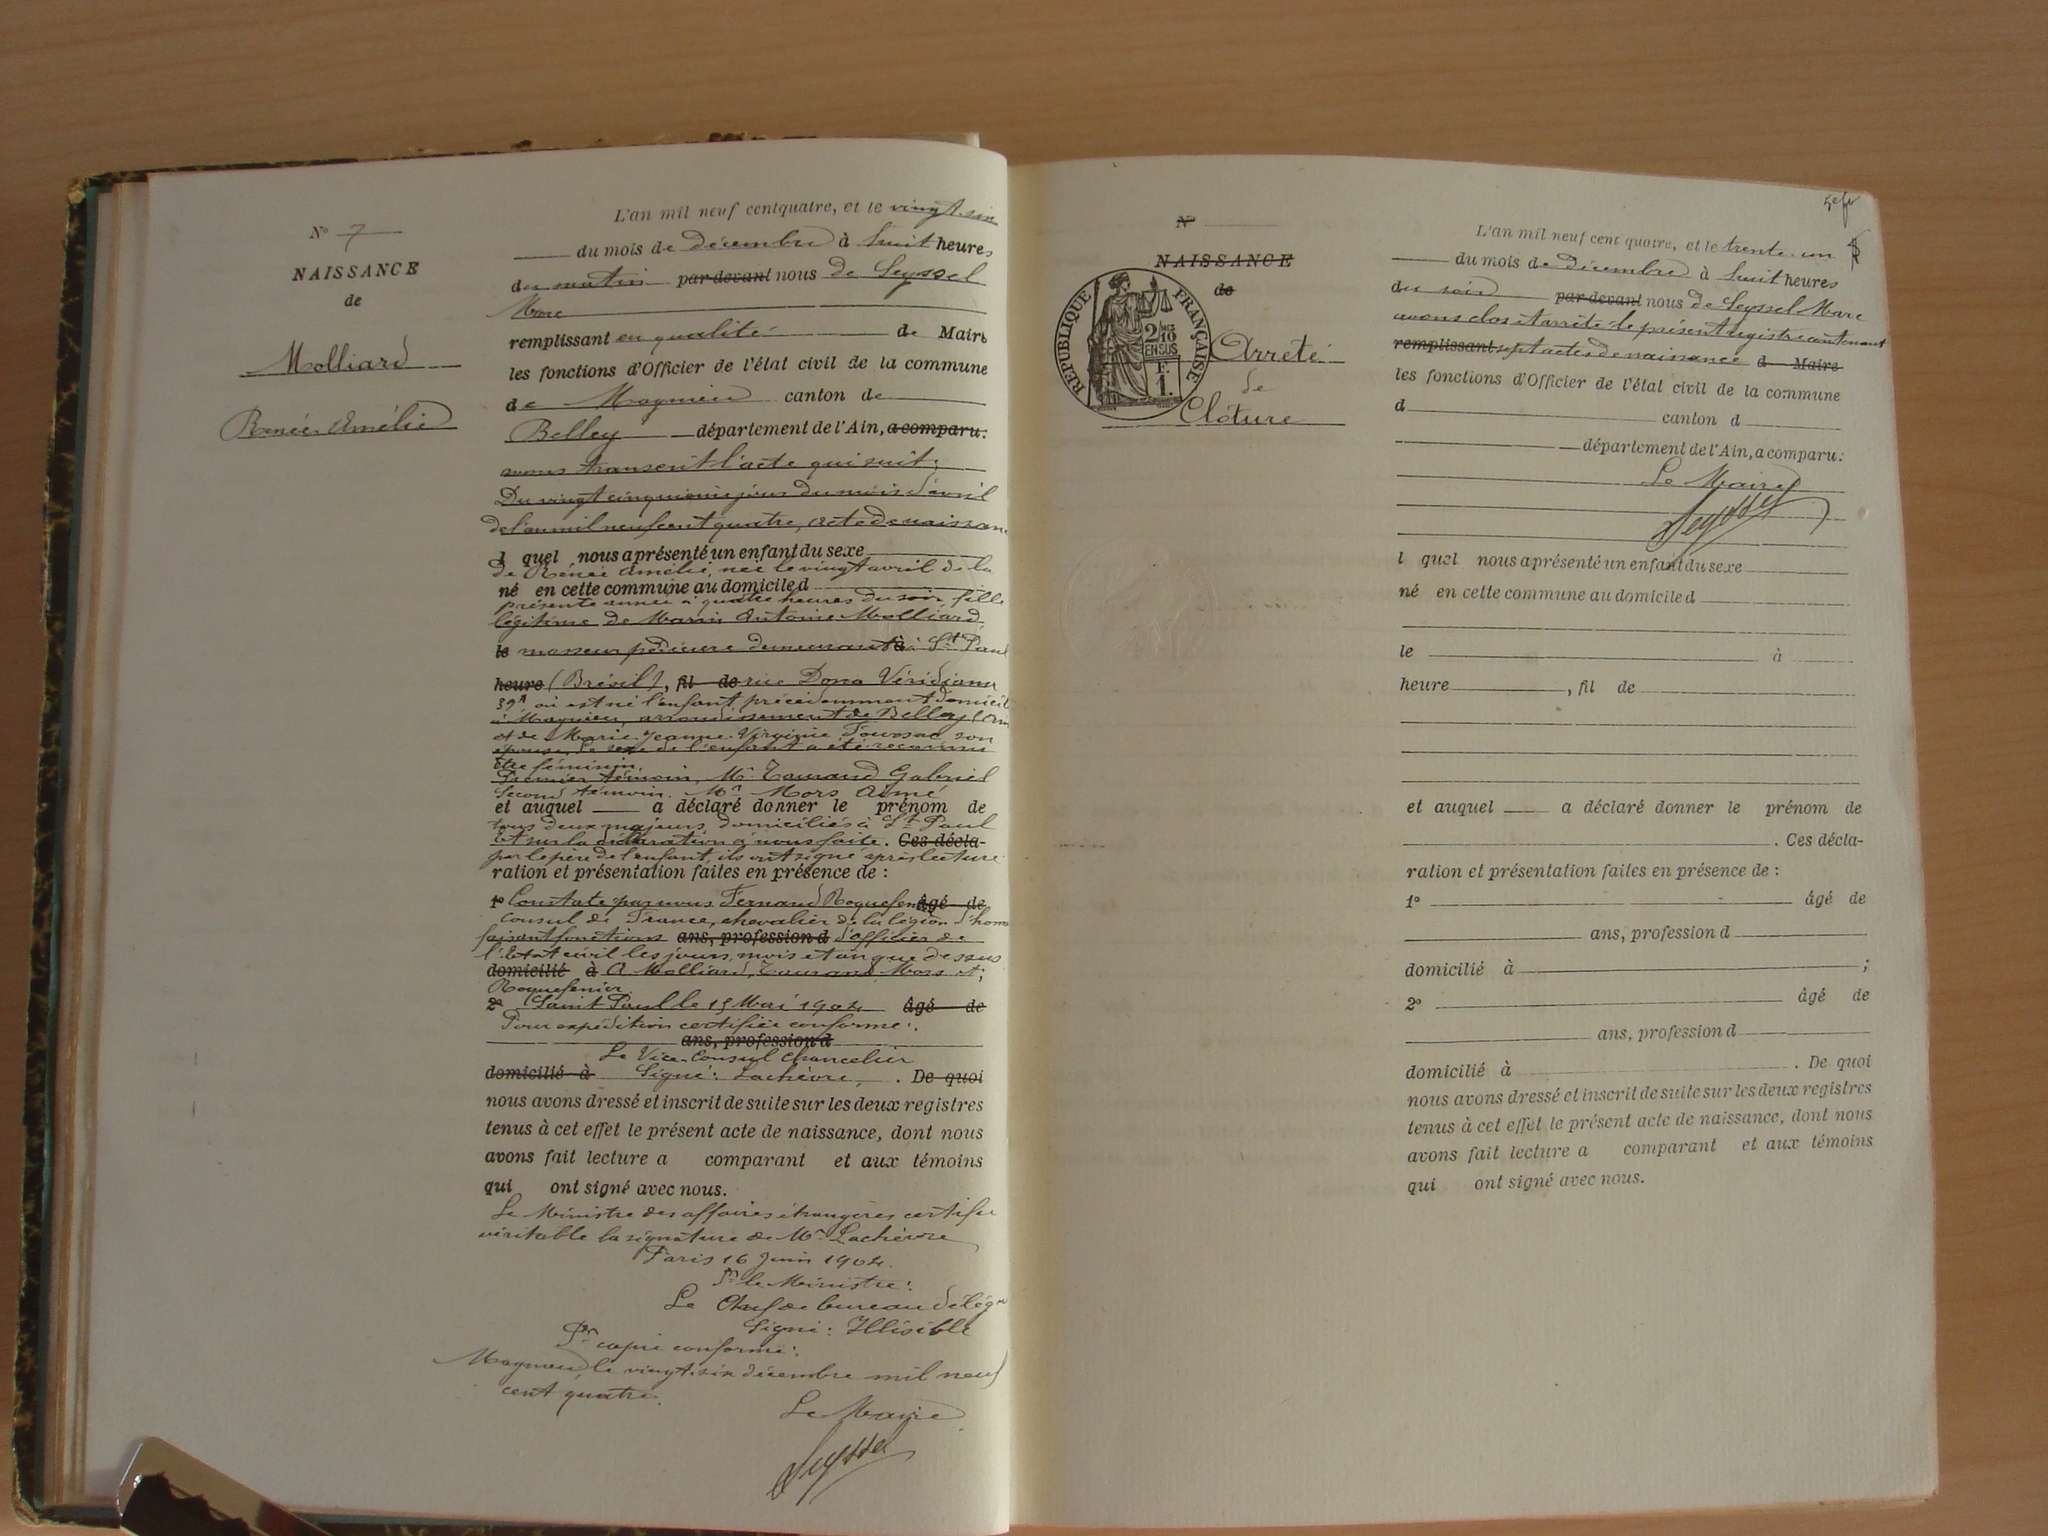 Nº 7
NAISSANCE
de
Molliard
Renée Amélie
L'an mil neuf cent quatre, et le vingt six
du mois de décembre à huit heures
du matin par devant nous de Seyssel
Marc
remplissant en qualité de Maire
les fonctions d'Officier de l'état civil de la commune
de Magnieu canton de
Belley département de l'Ain, a comparu:
avons transcrit l'acte qui suit:
Du vingt cinquième jour du mois d'avril
de l'an mil neuf cent quatre, acte de naissan
l quel nous a présenté un enfant du sexe
de Renée Amélie, née le vingt avril de la
né en cette commune au domicile d
présente année à quatre heures du soir fille
légitime de Marin Antoine Molliard
le masseur pédicure demeurant à St Paul
heure (Brésil), fil de rue Dona Véridiana
39A où est né l'enfant précédemment domicil
à Magnieu, arrondissement de Belley (Ain
et de Marie Jeanne Virginie son
épouse, le sexe de l'enfant a été reconnu
être féminin.
Premier témoin, Mr Taurand Gabriel
Second témoin. Mr Mors Aimé
et auquel a déclaré donner le prénom de
tous deux majeurs domiciliés à St Paul
Et sur la déclaration à nous faite. Ces décla-
par le père de l'enfant, ils ont signé après lecture
ration et présentation faites en présence de :
1º Constaté par nous Fernand âgé de
Consul de France, chevalier de la légion d'hon
faisant fonctions ans, profession d d'officier de
l'Etat civil les jours, mois et an que dessus
domicilié à A Molliard, Taurand Mors et ;
2º Saint Paul le 15 Mai 1904 âgé de
Pour expédition certifiée conforme:
ans, profession d
Le Vice-Consul Chancelier
domicilié à Signé: Lachèvre, . De quoi
nous avons dressé et inscrit de suite sur les deux registres
tenus à cet effet le présent acte de naissance, dont nous
avons fait lecture a comparant et aux témoins
qui ont signé avec nous.
Le Ministre des affaires étrangères certifie
véritable la signature de Mr Lachèvre
Paris 16 Juin 1904.
Pr le Ministre:
Le Chef de bureau délégué
Signé: Illisible
Pr copie conforme:
Magnieu, le vingt six décembre mil neuf
cent quatre.
Le Maire
Seyssel
Nº
NAISSANCE
de
REPUBLIQUE FRANÇAISE
2/10
EN SUS
F.
1.
Arrêté
de
Clôture
L'an mil neuf cent quatre, et le trente un
du mois de décembre à huit heures
du soir par devant nous de Seyssel Marc
avons clos et arrêté le présent registre contenant
remplissant sept actes de naissance d Maire
les fonctions d'Officier de l'état civil de la commune
d canton d
département de l'Ain, a comparu:
Le Maire
Seyssel
l quel nous a présenté un enfant du sexe
né en cette commune au domicile d
le à
heure , fil de
et auquel a déclaré donner le prénom de
. Ces décla-
ration et présentation faites en présence de :
1º âgé de
ans, profession d
domicilié à ;
2º âgé de
ans, profession d
domicilié à . De quoi
nous avons dressé et inscrit de suite sur les deux registres
tenus à cet effet le présent acte de naissance, dont nous
avons fait lecture a comparant et aux témoins
qui ont signé avec nous.